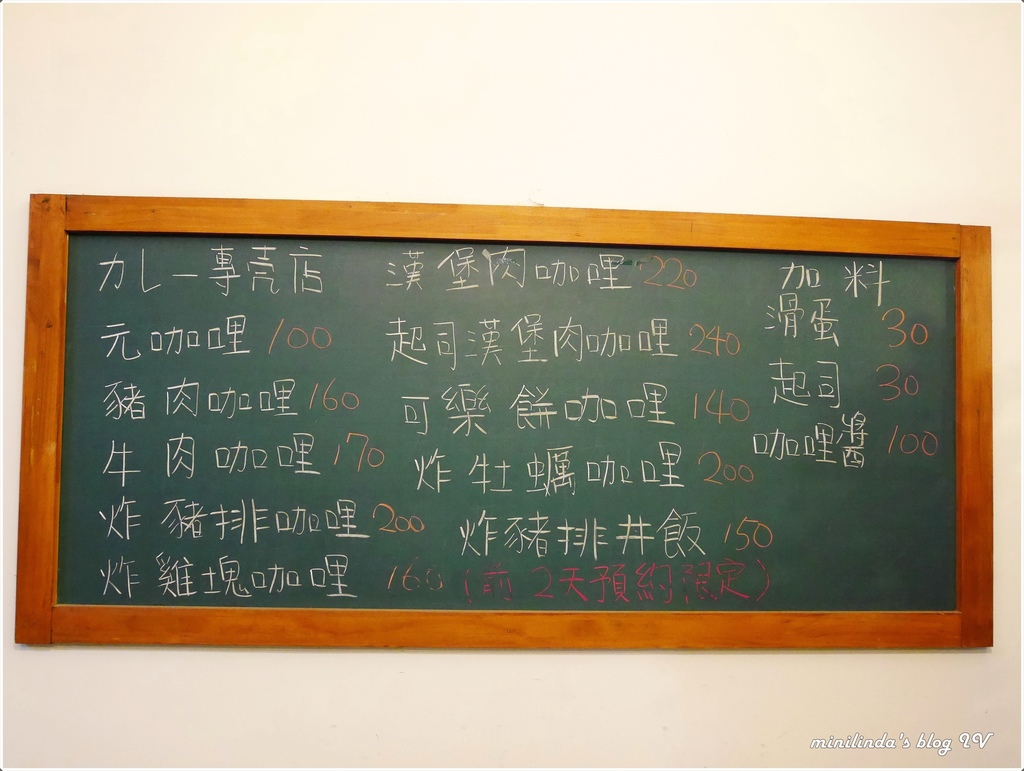 カレー專売店
元咖哩 100
豬肉咖哩 160
牛肉咖哩 170
炸豬排咖哩 200
炸雞塊咖哩 160
漢堡肉咖哩 220
起司漢堡肉咖哩 240
可樂餅咖哩 140
炸牡蠣咖哩 200
炸豬排井飯 150
(前2天預約限定)
加料
滑蛋 30
起司 30
咖哩醬 100
minilinda's blog IV